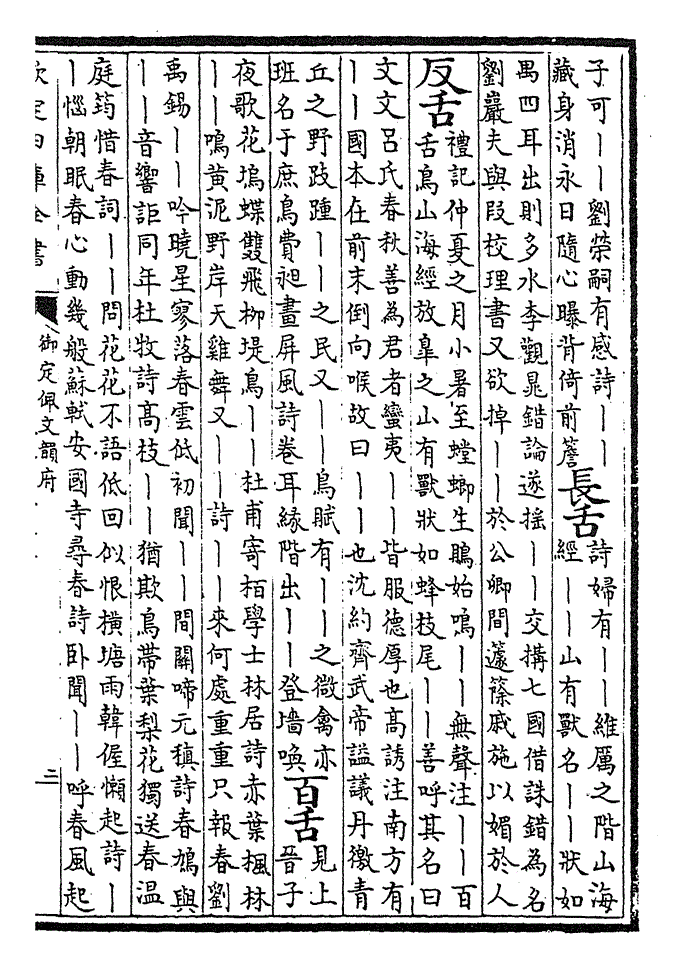 子可丨丨劉榮嗣有感詩丨丨
藏身消永日隨心曝背倚前簷
長舌
詩婦有丨丨維厲之階山海
經丨丨山有獸名丨丨狀如
禺四耳出則多水李觀晁錯論遂搖丨丨交搆七國借誅錯為名
劉巖夫與段校理書又欲掉丨丨於公卿間蘧篨戚施以媚於人
反舌
禮記仲夏之月小暑至螳螂生鵙始鳴丨丨無聲注丨丨百
舌鳥山海經放臯之山有獸狀如蜂枝尾丨丨善呼其名曰
文文呂氏春秋善為君者蠻夷丨丨皆服德厚也高誘注南方有
丨丨國本在前末倒向喉故曰丨丨也沈約齊武帝謚議丹徼青
丘之野跂踵丨丨之民又丨丨鳥賦有丨丨之微禽亦
班名于庶鳥費昶畫屏風詩卷耳緣階出丨丨登墻喚
百舌
見上
晉子
夜歌花塢蝶雙飛柳堤鳥丨丨杜甫寄栢學士林居詩赤葉楓林
丨丨鳴黃泥野岸天雞舞又丨丨詩丨丨來何處重重只報春劉
禹錫丨丨吟曉星寥落春雲低初聞丨丨間關啼元稹詩春鳩與
丨丨音響詎同年杜牧詩高枝丨丨猶欺鳥帶葉梨花獨送春温
庭筠惜春詞丨丨問花花不語低回似恨橫塘雨韓偓懶起詩丨
丨惱朝眠春心動幾般蘇軾安國寺尋春詩卧聞丨丨呼春風起
欽定四庫全書
御定佩文韻府
二